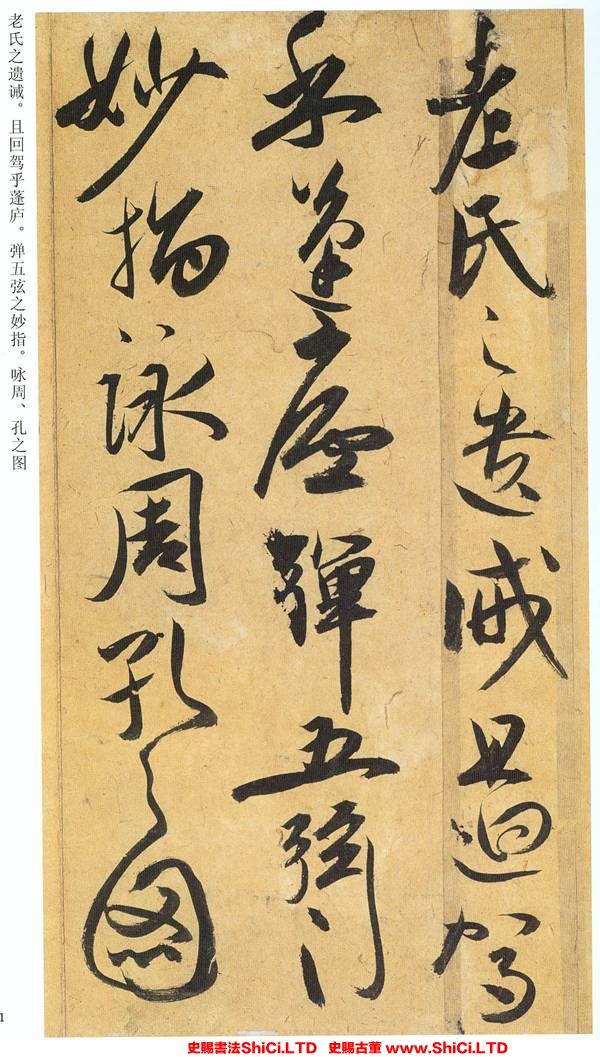 老氏之遺誡且迴駕
乎蓬廬彈五弦
妙指詠周孔之圖
老氏之遗诫。且回驾乎蓬庐。弹五弦之妙指。咏周、孔之图
1
史赐書法ShiCi.LTD 史赐古董 www.ShiCi.LTD